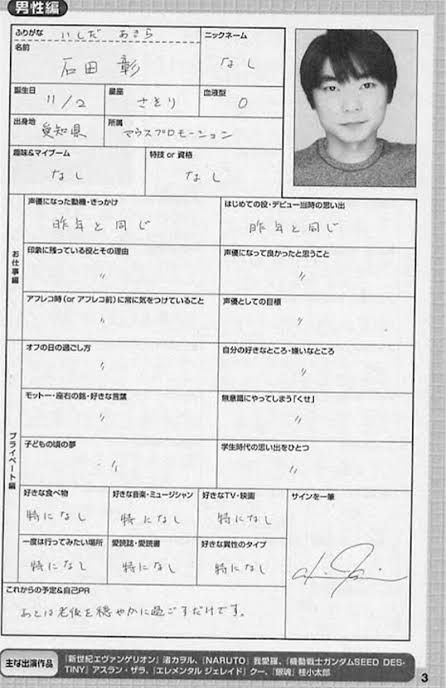 男性編
ふりがな いしだ あきら
名前 石田 彰
ニックネーム なし
誕生日 11/2
星座 さそり
血液型 O
出身地 愛知県
所属 マウスプロモーション
趣味&マイブーム なし
特技 or 資格 なし
お仕事編
声優になった動機・きっかけ 昨年と同じ
はじめての役・デビュー当時の思い出 昨年と同じ
印象に残っている役とその理由 〃
声優になって良かったと思うこと 〃
アフレコ時(or アフレコ前)に常に気をつけていること 〃
声優としての目標 〃
プライベート編
オフの日の過ごし方 〃
自分の好きなところ・嫌いなところ 〃
モットー・座右の銘・好きな言葉 〃
無意識にやってしまう「くせ」 〃
子どもの頃の夢 〃
学生時代の思い出をひとつ 〃
好きな食べ物 特になし
好きな音楽・ミュージシャン 特になし
好きなTV・映画 特になし
サインを一筆
一度は行ってみたい場所 特になし
愛読誌・愛読書 特になし
好きな異性のタイプ 特になし
これからの予定&自己PR
あとは老後を穏やかに過ごすだけです。
主な出演作品
『新世紀エヴァンゲリオン』渚カヲル、『NARUTO』我愛羅、『機動戦士ガンダムSEED DES-
TINY』アスラン・ザラ、『エレメンタル ジェレイド』クー、『銀魂』桂小太郎
3